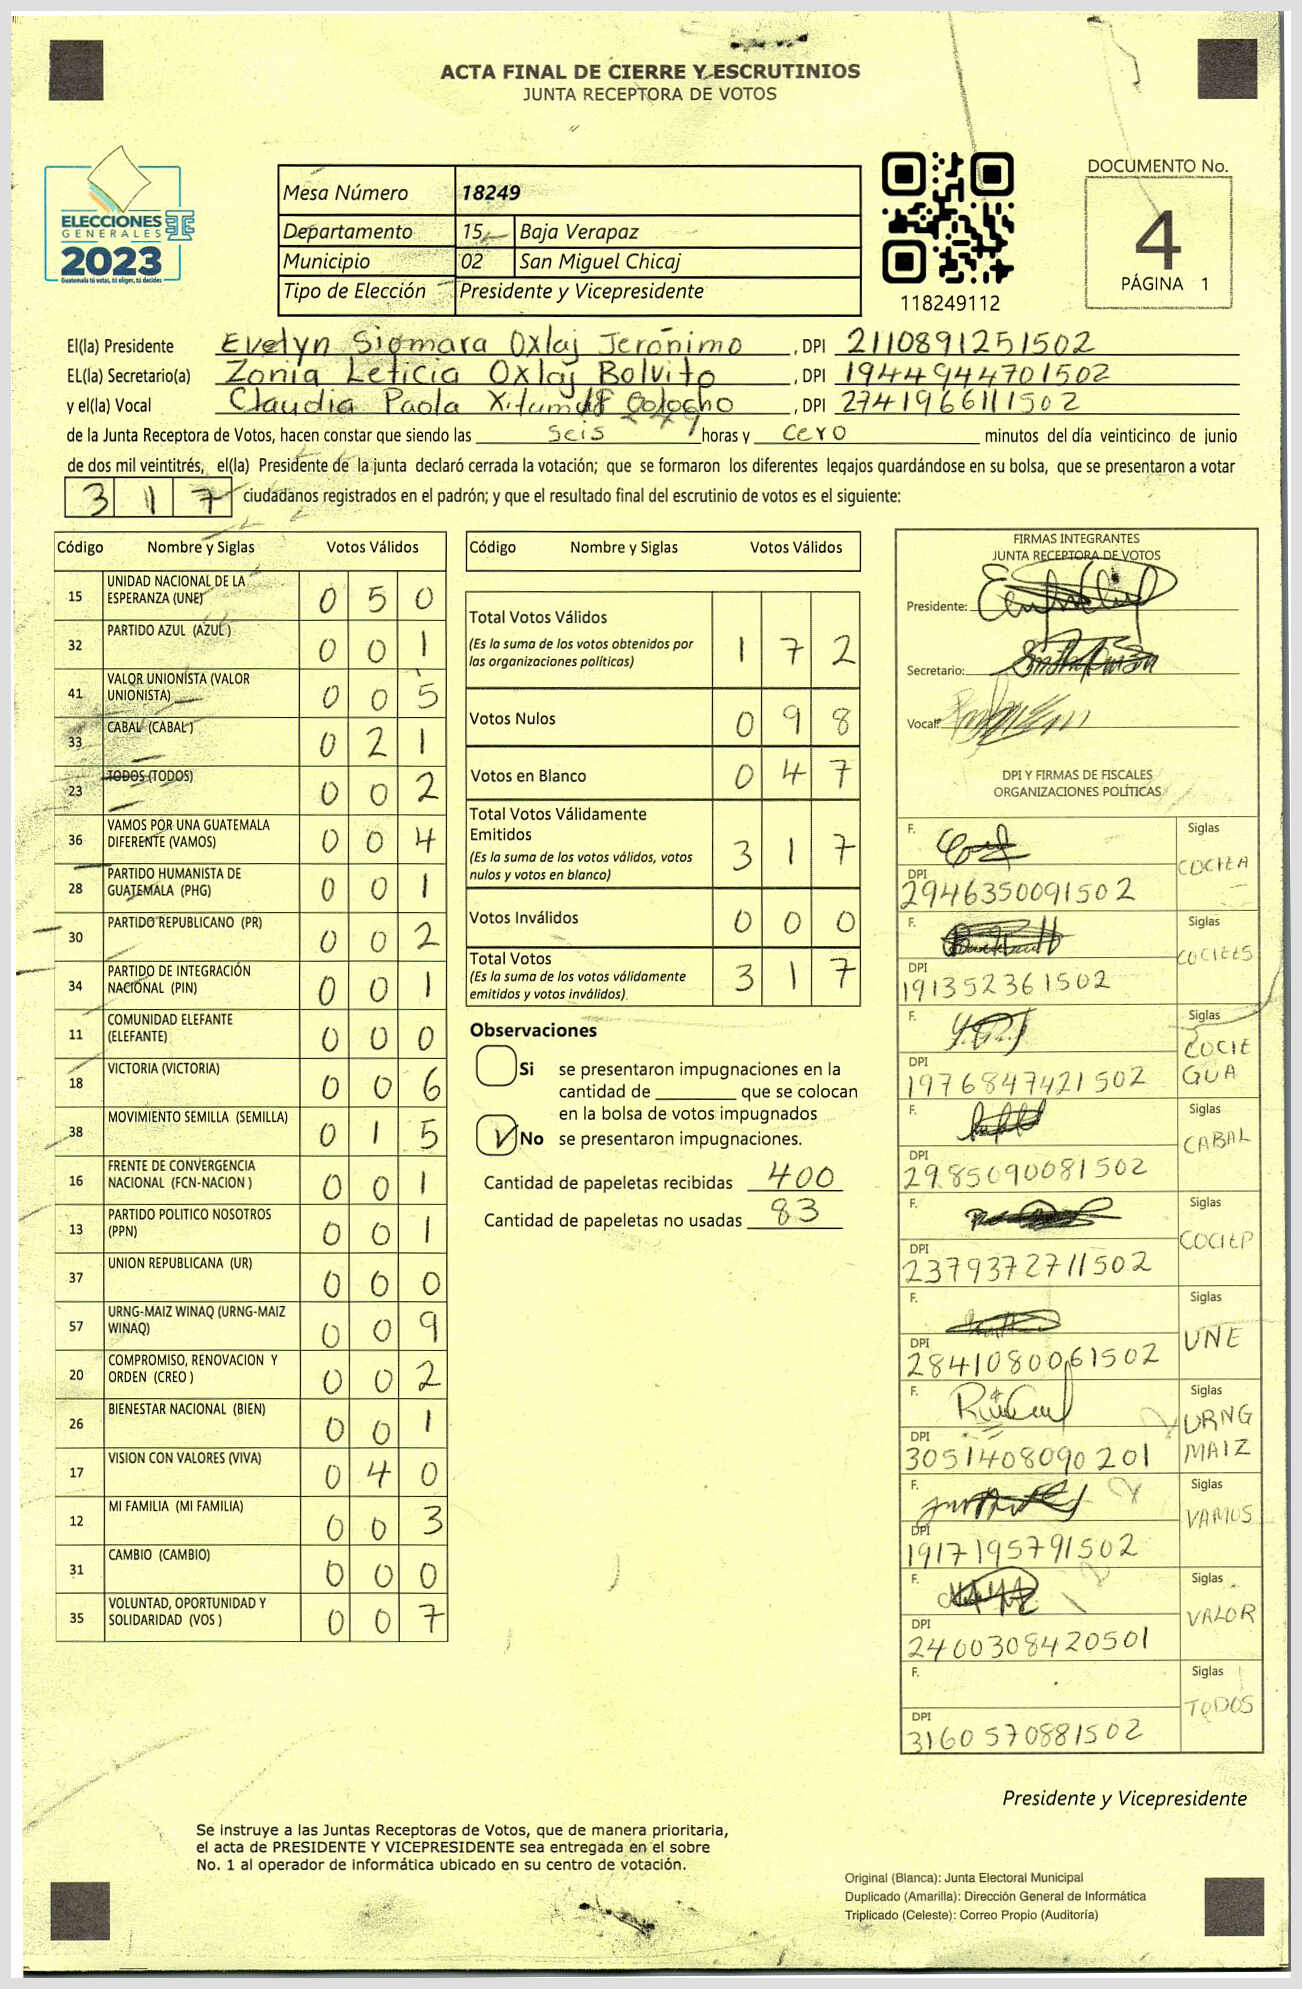 ACTA FINAL DE CIERRE Y ESCRUTINIOS
JUNTA RECEPTORA DE VOTOS
ELECCIONES
GENERALES
2023
Guatemala tú votas, tú eliges, tú decides
Mesa Número 18249
Departamento 15 Baja Verapaz
Municipio 02 San Miguel Chicaj
Tipo de Elección Presidente y Vicepresidente
118249112
DOCUMENTO No.
4
PÁGINA 1
El(la) Presidente Evelyn Siomara Oxlaj Jerónimo, DPI 2110891251502
EL(la) Secretario(a) Zonia Leticia Oxlaj Bolvito, DPI 1944944701502
y el(la) Vocal Claudia Paola Cologho, DPI 2741966111502
de la Junta Receptora de Votos, hacen constar que siendo las seis horas y cero minutos del día veinticinco de junio
de dos mil veintitrés, el(la) Presidente de la junta declaró cerrada la votación; que se formaron los diferentes legajos guardándose en su bolsa, que se presentaron a votar
317 ciudadanos registrados en el padrón; y que el resultado final del escrutinio de votos es el siguiente:
Código Nombre y Siglas Votos Válidos
15 UNIDAD NACIONAL DE LA ESPERANZA (UNE) 0 5 0
32 PARTIDO AZUL (AZUL) 0 0 1
41 VALOR UNIONISTA (VALOR UNIONISTA) 0 0 5
33 CABAL (CABAL) 0 2 1
23 TODOS (TODOS) 0 0 2
36 VAMOS POR UNA GUATEMALA DIFERENTE (VAMOS) 0 0 4
28 PARTIDO HUMANISTA DE GUATEMALA (PHG) 0 0 1
30 PARTIDO REPUBLICANO (PR) 0 0 2
34 PARTIDO DE INTEGRACIÓN NACIONAL (PIN) 0 0 1
11 COMUNIDAD ELEFANTE (ELEFANTE) 0 0 0
18 VICTORIA (VICTORIA) 0 0 6
38 MOVIMIENTO SEMILLA (SEMILLA) 0 1 5
16 FRENTE DE CONVERGENCIA NACIONAL (FCN-NACION) 0 0 1
13 PARTIDO POLITICO NOSOTROS (PPN) 0 0 1
37 UNION REPUBLICANA (UR) 0 0 0
57 URNG-MAIZ WINAQ (URNG-MAIZ WINAQ) 0 0 9
20 COMPROMISO, RENOVACION Y ORDEN (CREO) 0 0 2
26 BIENESTAR NACIONAL (BIEN) 0 0 1
17 VISION CON VALORES (VIVA) 0 4 0
12 MI FAMILIA (MI FAMILIA) 0 0 3
31 CAMBIO (CAMBIO) 0 0 0
35 VOLUNTAD, OPORTUNIDAD Y SOLIDARIDAD (VOS) 0 0 7
Código Nombre y Siglas Votos Válidos
Total Votos Válidos 1 7 2
(Es la suma de los votos obtenidos por
las organizaciones políticas)
Votos Nulos 0 9 8
Votos en Blanco 0 4 7
Total Votos Válidamente
Emitidos 3 1 7
(Es la suma de los votos válidos, votos
nulos y votos en blanco)
Votos Inválidos 0 0 0
Total Votos 3 1 7
(Es la suma de los votos válidamente
emitidos y votos inválidos).
Observaciones
Si se presentaron impugnaciones en la
cantidad de ________ que se colocan
en la bolsa de votos impugnados
No se presentaron impugnaciones.
Cantidad de papeletas recibidas 400
Cantidad de papeletas no usadas 83
FIRMAS INTEGRANTES
JUNTA RECEPTORA DE VOTOS
Presidente:
Secretario:
Vocal:
DPI Y FIRMAS DE FISCALES
ORGANIZACIONES POLÍTICAS
F. Siglas
DPI 2946350091502
F. Siglas
DPI 191352361502
F. Siglas COCIE GUA
DPI 1976847421502
F. Siglas CABAL
DPI 2985090081502
F. Siglas COCIEP
DPI 2379372711502
F. Siglas UNE
DPI 2841080061502
F. Siglas URNG MAIZ
DPI 3051408090201
F. Siglas VAMOS
DPI 1917195791502
F. Siglas VALOR
DPI 2400308420501
F. Siglas TODOS
DPI 3160570881502
Presidente y Vicepresidente
Se instruye a las Juntas Receptoras de Votos, que de manera prioritaria,
el acta de PRESIDENTE Y VICEPRESIDENTE sea entregada en el sobre
No. 1 al operador de informática ubicado en su centro de votación.
Original (Blanca): Junta Electoral Municipal
Duplicado (Amarilla): Dirección General de Informática
Triplicado (Celeste): Correo Propio (Auditoría)